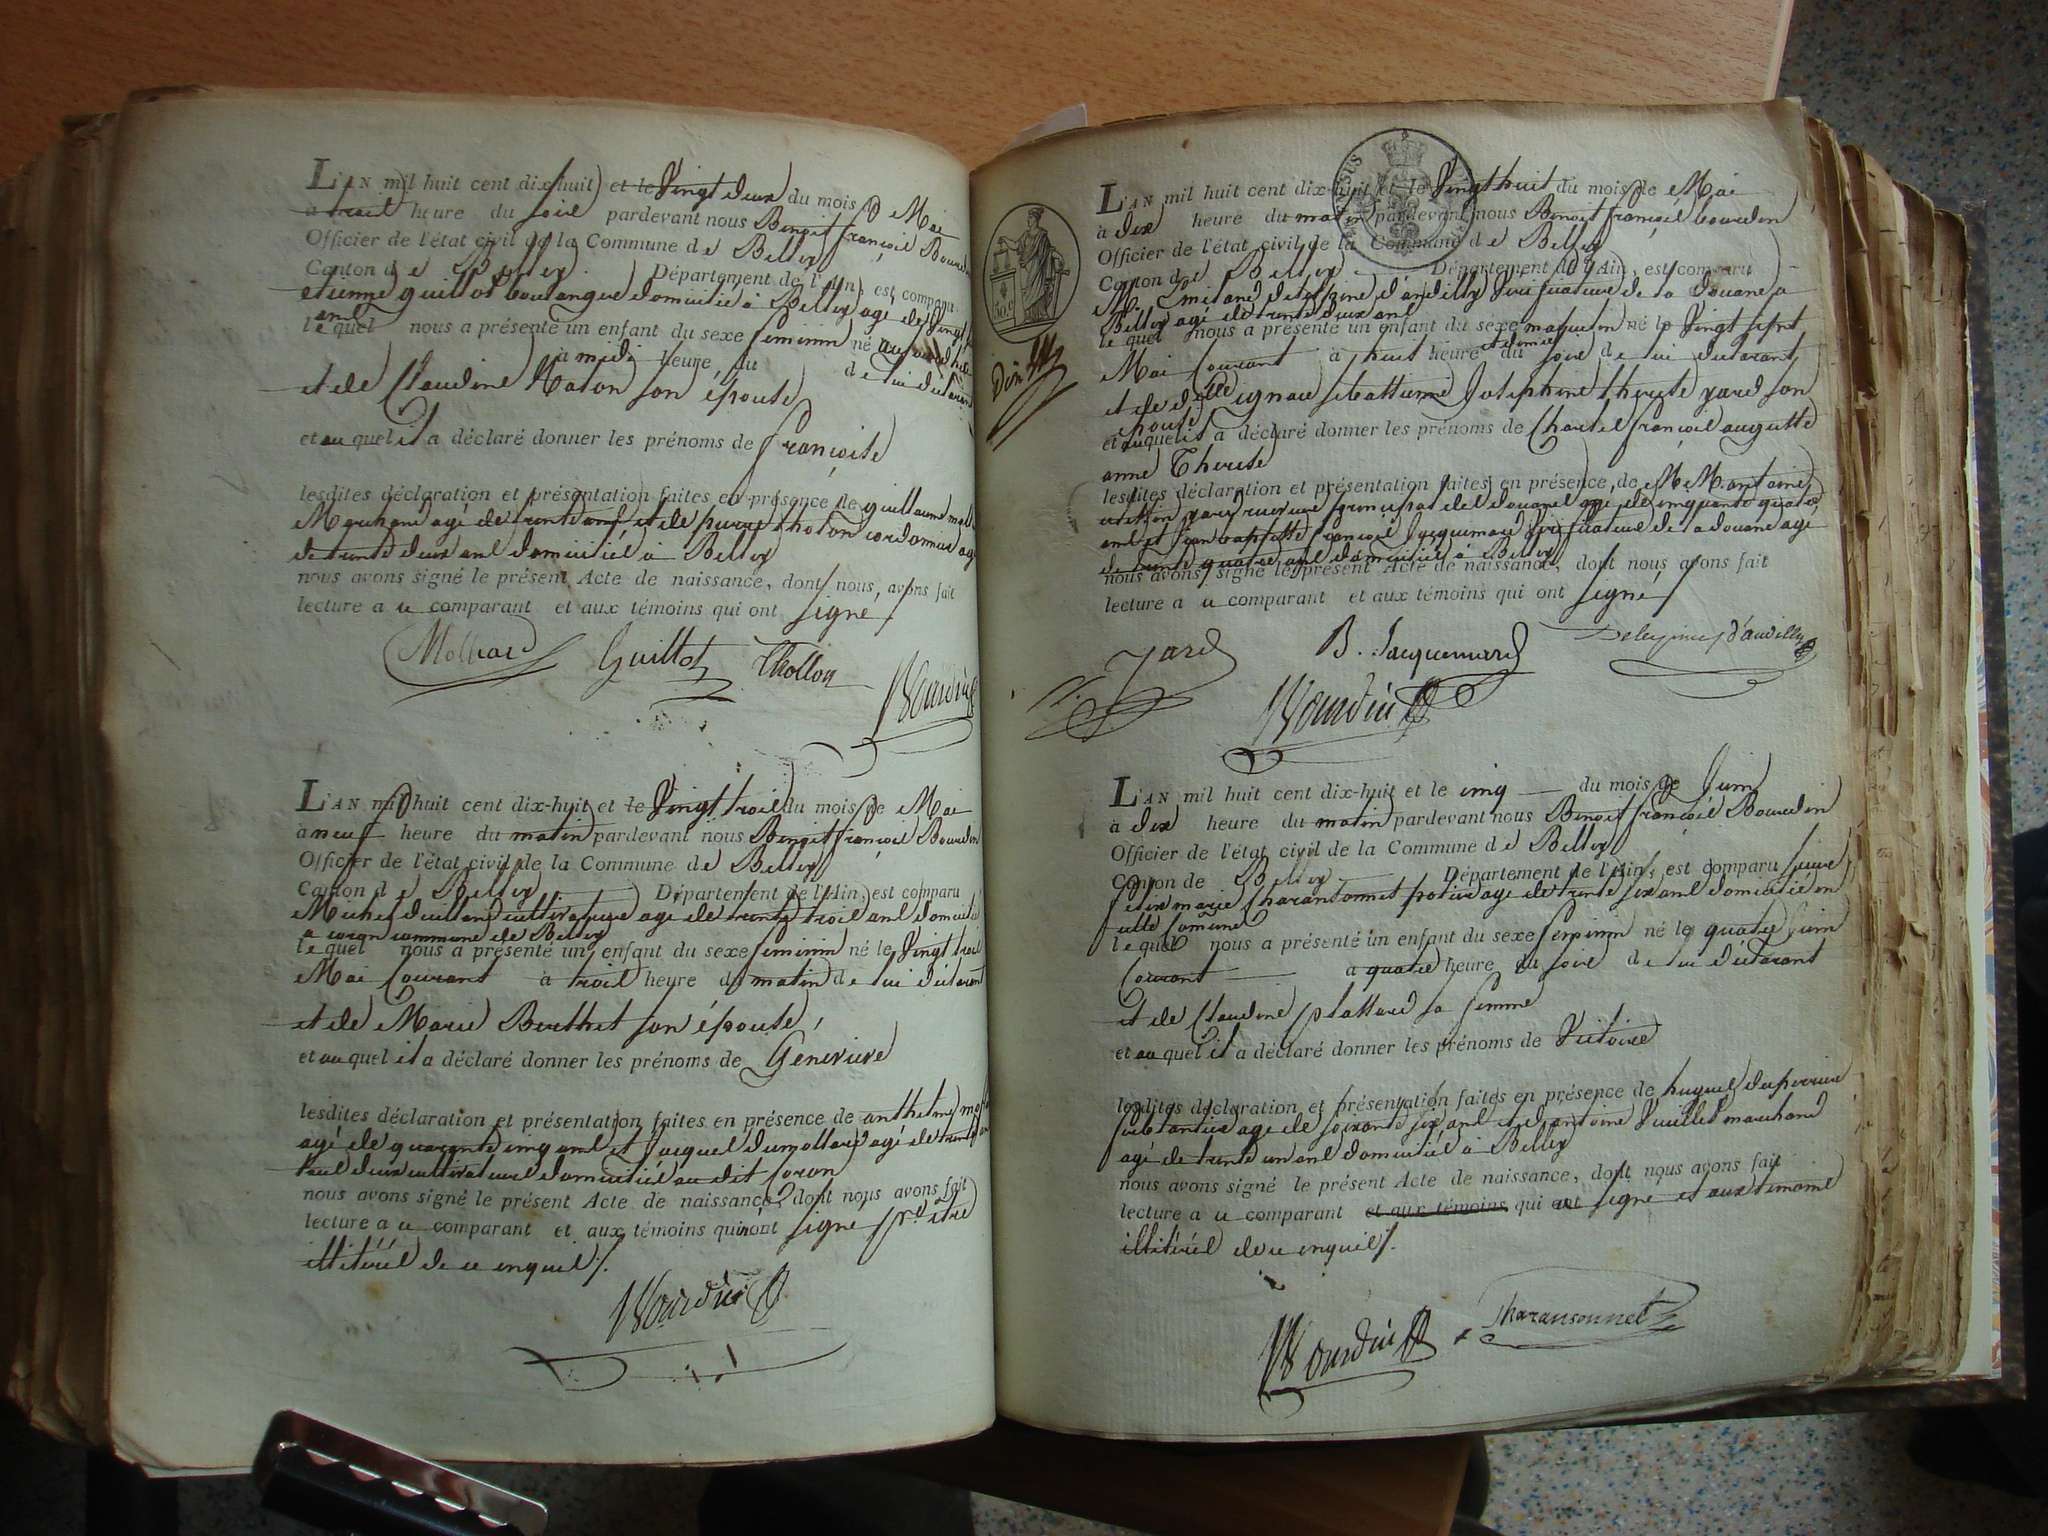 L'AN mil huit cent dix-huit et le Vingt deux du mois de Mai
à trois heure du soir pardevant nous Benoit françois Bourdin
Officier de l'état civil de la Commune de Belley
Canton de Belley Département de l'Ain, est comparu
etienne guillot boulanger domicilié à Belley agé de Vingt
ans
le quel nous a présenté un enfant du sexe feminin né aujourd'hui
à midi heure du de lui déclarant
et de Claudine son épouse
et au quel il a déclaré donner les prénoms de françoise
lesdites déclaration et présentation faites en présence de guillaume
Marchand agé de trente ans et de pierre cordonnier agé
de trente deux ans domiciliés à Belley
nous avons signé le présent Acte de naissance, dont nous avons fait
lecture a ce comparant et aux témoins qui ont signé
Guillot Thollon
Bourdin
L'AN mil huit cent dix-huit et le Vingt trois du mois de Mai
à neuf heure du matin pardevant nous Benoit françois Bourdin
Officier de l'état civil de la Commune de Belley
Canton de Belley Département de l'Ain, est comparu
Michel cultivateur agé de trente trois ans domicilié
a coron commune de Belley
le quel nous a présenté un enfant du sexe feminin né le Vingt trois
Mai Courant à trois heure du matin de lui déclarant
et de Marie Berthet son épouse,
et au quel il a déclaré donner les prénoms de Genevieve
lesdites déclaration et présentation faites en présence de anthelme
agé de quarante cinq ans et Jacques Dumollard agé de trente
tous deux cultivateurs domiciliés au dit Coron
nous avons signé le présent Acte de naissance, dont nous avons fait
lecture a ce comparant et aux témoins qui n'ont signé pr. être
illitérés de ce enquis /.
Bourdin
L'AN mil huit cent dix-huit et le Vingt huit du mois de Mai
à dix heure du matin pardevant nous Benoit françois bourdin
Officier de l'état civil de la Commune de Belley
Canton de Belley Département de l'Ain, est comparu
M. delespine d'andilly Verificateur de la douane a
Belley agé de trente deux ans
le quel nous a présenté un enfant du sexe masculin né le Vingt sept
Mai Courant à huit heure et demie du soir de lui déclarant
et de dlle Josephine therese yard son
épouse
et auquel il a déclaré donner les prénoms de Charles françois auguste
anne Therese
lesdites déclaration et présentation faites en présence de M M. antoine
yard receveur principal des douanes agé de cinquante quatre
ans et Jean baptiste françois Jacquemard Verificateur de la douane agé
de trente quatre ans domiciliés à Belley
nous avons signé le présent Acte de naissance, dont nous avons fait
lecture a ce comparant et aux témoins qui ont signé
yard B. Jacquemard Delespine d'andilly
Bourdin
L'AN mil huit cent dix-huit et le cinq du mois de Juin
à dix heure du matin pardevant nous Benoit françois Bourdin
Officier de l'état civil de la Commune de Belley
Canton de Belley Département de l'Ain, est comparu sieur
felix marie Charansonnet potier agé de trente six ans domicilié en
cette Comune
le quel nous a présenté un enfant du sexe feminin né le quatre Juin
Courant à quatre heure du soir de lui déclarant
et de Claudine plattard sa femme
et au quel il a déclaré donner les prénoms de Victoire
lesdites déclaration et présentation faites en présence de hugues duperrier
agé de soixante six ans et antoine Vuillet marchand
agé de trente un ans domiciliés à Belley
nous avons signé le présent Acte de naissance, dont nous avons fait
lecture a ce comparant et aux témoins qui a signé et aux temoins
illitérés de ce enquis /.
Bourdin Charansonnet